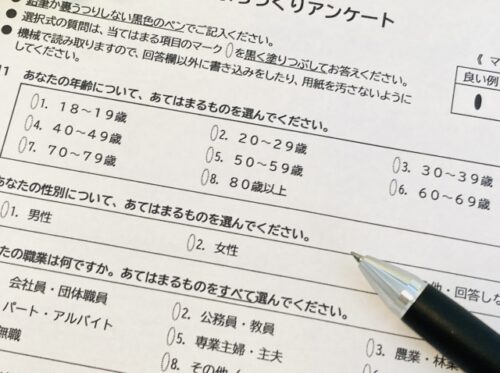 づくりアンケート
● 鉛筆か裏うつりしない黒色のペンでご記入ください。
● 選択式の質問は、当てはまる項目のマーク0を黒く塗りつぶしてお答えください。
● 機械で読み取りますので、回答欄以外に書き込みをしたり、用紙を汚さないように
してください。
《 マ
良い例
1 あなたの年齢について、あてはまるものを選んでください。
1. 18～19歳 2. 20～29歳 3. 30～39歳
4. 40～49歳 5. 50～59歳 6. 60～69歳
7. 70～79歳 8. 80歳以上
あなたの性別について、あてはまるものを選んでください。
1. 男性 2. 女性 他・回答しな
たの職業は何ですか。あてはまるものをすべて選んでください。
会社員・団体職員 2. 公務員・教員 3. 農業・林業
パート・アルバイト 5. 専業主婦・主夫
無職 8. その他